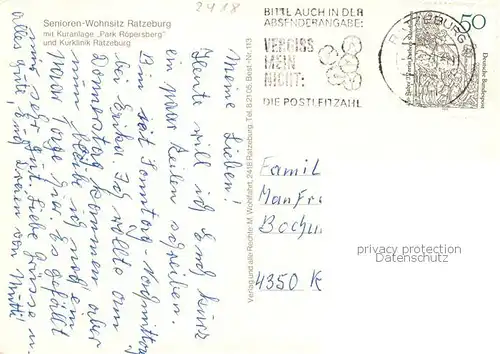 Senioren-Wohnsitz Ratzeburg
mit Kuranlage „Park Röpersberg"
und Kurklinik Ratzeburg
2418
BITTE AUCH IN DER
ABSENDERANGABE:
VERGISS
MEIN
NICHT:
DIE POSTLEITZAHL
RATZEBURG
50
Deutsche Bundespost
Meine Lieben!
Heute will ich Euch kurz
ein paar Zeilen schreiben.
Bin seit Sonntag-Nachmittag
bei Erika. Ich wollte am
Donnerstag kommen, aber
nun bleibe ich noch ein
paar Tage hier. Es gefällt
mir sehr gut. Liebe Grüsse u.
alles gute, Euch Dreien von Mutti!
Verlag und alle Rechte: M. Wohlfahrt, 2418 Ratzeburg, Tel. 82105, Best-Nr. 113
Famil
Manfre
Bochu
4350 R
privacy protection
Datenschutz